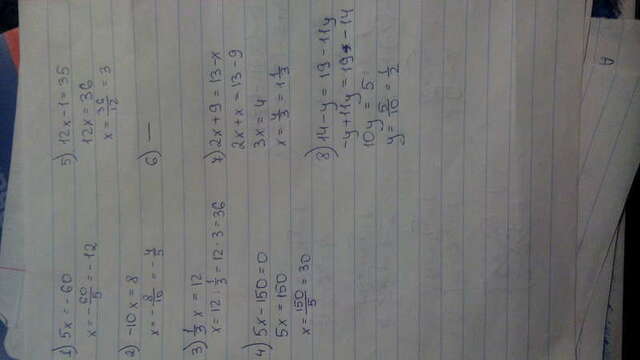 1) 5x = -60
x = -60/5 = -12
2) -10x = 8
x = -8/10 = -4/5
3) 1/3 x = 12
x = 12 : 1/3 = 12 · 3 = 36
4) 5x - 150 = 0
5x = 150
x = 150/5 = 30
5) 12x - 1 = 35
12x = 36
x = 36/12 = 3
6) —
7) 2x + 9 = 13 - x
2x + x = 13 - 9
3x = 4
x = 4/3 = 1 1/3
8) 14 - y = 19 - 11y
-y + 11y = 19 - 14
10y = 5
y = 5/10 = 1/2